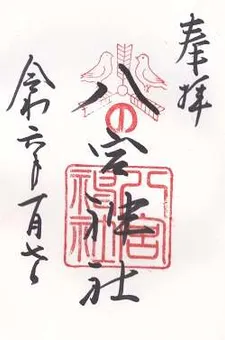 奉拝
八の宮神社
八宮神社
令和六年一月七日